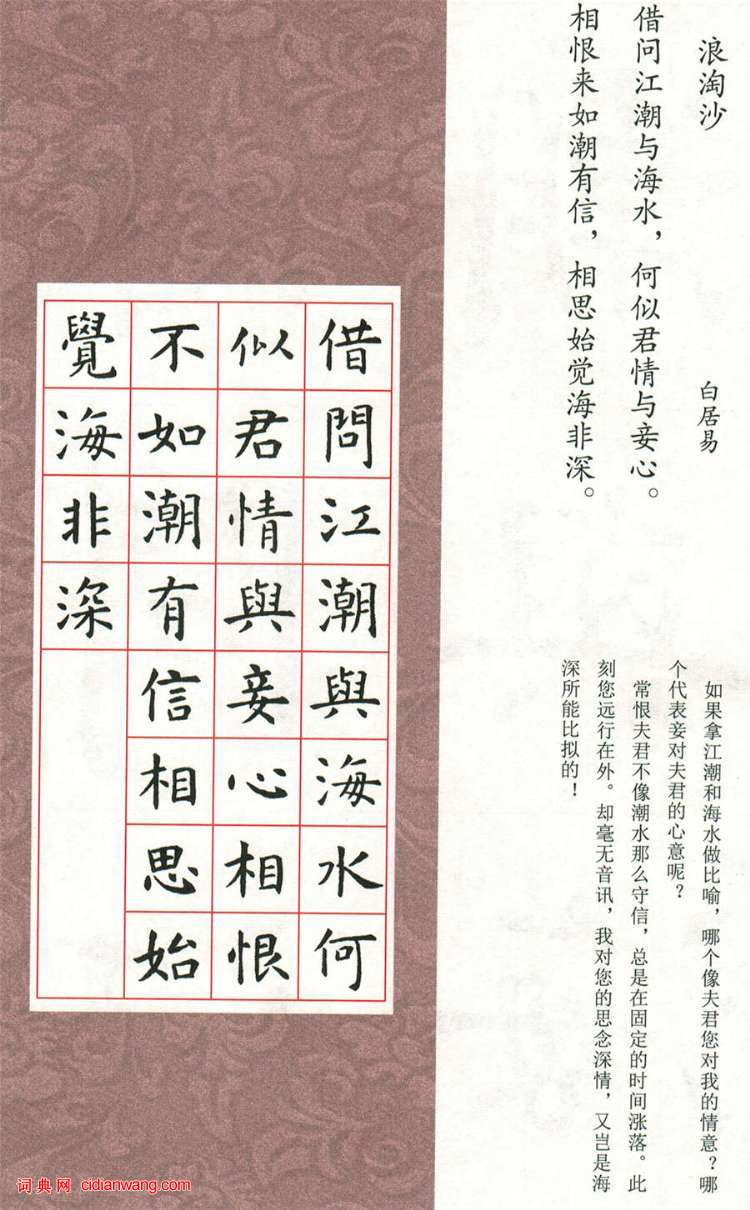 浪淘沙
白居易
借问江潮与海水，何似君情与妾心。
相恨来如潮有信，相思始觉海非深。
如果拿江潮和海水做比喻，哪个像夫君您对我的情意？哪
个代表妾对夫君的心意呢？
常恨夫君不像潮水那么守信，总是在固定的时间涨落。此
刻您远行在外。却毫无音讯，我对您的思念深情，又岂是海
深所能比拟的！
借問江潮與海水何
似君情與妾心相恨
不如潮有信相思始
覺海非深
词典网 cidianwang.com